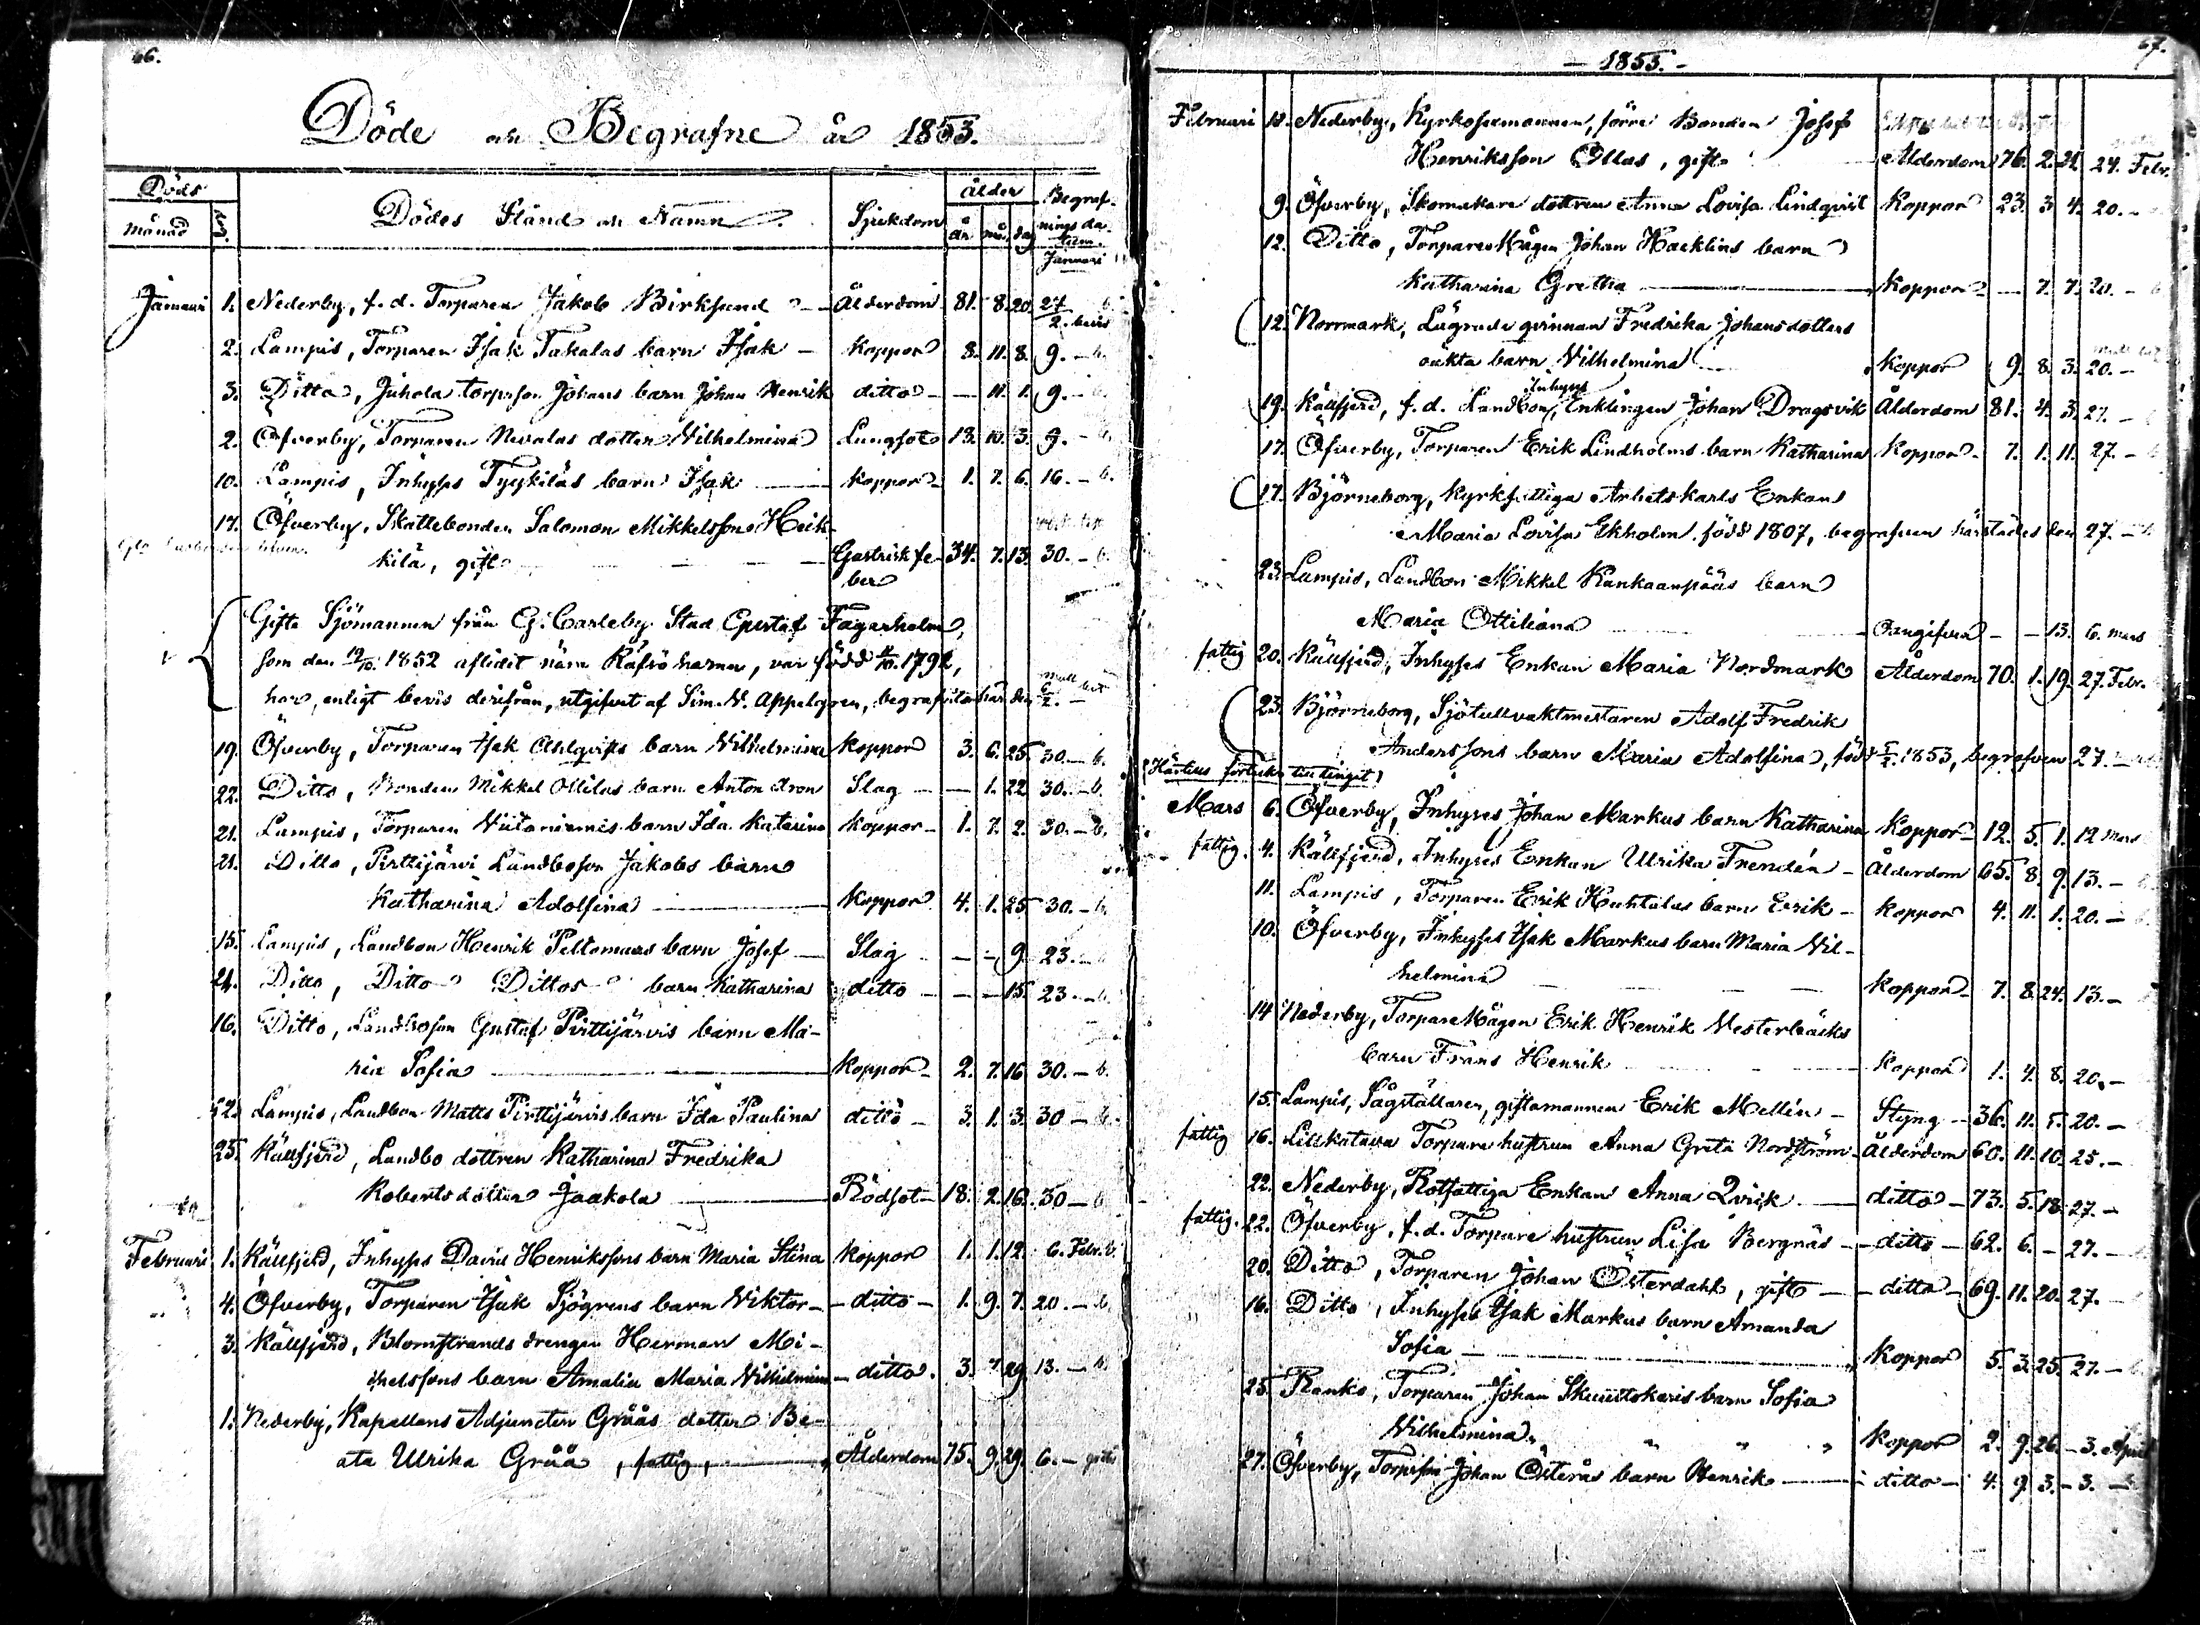 66.
Döde och Begrafne år 1853.
Döds
månad
Dödes Stånd och Namn
Sjukdom
Ålder
år mån dag
Begraf-
nings da-
tum.
Januari
Januari 1. Nederby, f. d. Torparen Jakob Birksund Ålderdom 81. 8. 20. 27/2. bevis
2. Lampis, Torparen Isak Takalas barn Isak – Koppor 8. 11. 8. 9. – b.
3. Ditto, Juhola torpsson Johans barn Johan Henrik ditto – – 11. 1. 9. –
2. Öfverby, Torparen Nevalas dotter Vilhelmina Lungsot 13. 10. 3. 9. –
10. Lampis, Inhyses Tyykiläs barn Isak Koppor 1. 7. 6. 16. – b.
17. Öfverby, Skattebonden Salomon Mikkelsson Heik-
kilä, gift Gastrisk fe- 34. 7. 13. 30. – b.
ber
Gifte Sjömannen från G: Carleby Stad Gustaf Fagerholm,
som den 19/10. 1852 aflidit nära Räfsö hamn, var född 1792,
har, enligt bevis derifrån, utgifvet af Sim. V. Appelgren, begrafvits här den
19. Öfverby, Torparen Isak Ahlqvists barn Vilhelmina Koppor 3. 6. 25. 30. – b.
22. Ditto, Bonden Mikkel Ollilas barn Anton Aron Slag – – 1. 22. 30. – b.
21. Lampis, Torparen Viitaniemis barn Ida Katarina Koppor – 1. 7. 2. 30. – b.
21. Ditto, Pirttijärvi Landboson Jakobs barn
Katharina Adolfina Koppor 4. 1. 25. 30. – b.
15. Lampis, Landbon Henrik Peltomaas barn Josef – Slag – – 9. 23. –
24. Ditto, Ditto Dittos barn Katharina ditto – – – 15. 23. –
16. Ditto, Landboson Gustaf Pirttijärvis barn Ma-
ria Sofia Koppor – 2. 7. 16. 30. – b.
22. Lampis, Landbon Matts Pirttijärvis barn Ida Paulina ditto – 3. 1. 3. 30 – b.
25. Källfjerd, Landbo dottren Katharina Fredrika
Robertsdotter Jaakola Rödsot – 18. 2. 16. 30 –
Februari 1. Källfjerd, Inhyses David Henrikssons barn Maria Stina Koppor 1. 1. 12. 6. Febr. b.
4. Öfverby, Torparen Isak Sjögrens barn Viktor – ditto – 1. 9. 7. 20. – b.
3. Källfjerd, Blomstrands drengen Herman Mi-
chelssons barn Amalia Maria Vilhelmina – ditto. 3. 29. 13. – b.
1. Nederby, Kapellans Adjuncten Grååss dotter Be-
ata Ulrika Gråå, fattig, Ålderdom 75. 9. 29. 6. – gratis
67.
– 1853. –
Februari 18. Nederby, Kyrkosexmannen, förre Bonden Josef
Henriksson Ollas, gift Ålderdom 76. 2. 24. Febr.
9. Öfverby, Skomakare dottren Anna Lovisa Lindqvist Koppor 23. 3. 4. 20. –
12. Ditto, Torpare Mågen Johan Hacklins barn
Katharina Gretha Koppor – 7. 7. 20. –
12. Norrmark, Lägrade qvinnan Fredrika Johansdotters
oäkta barn Vilhelmina Koppor 9. 8. 3. 20. –
19. Källfjerd, f. d. Landbon, Inhyses Enklingen Johan Dragsvik Ålderdom 81. 4. 3. 27. –
17. Öfverby, Torparen Erik Lindholms barn Katharina Koppor – 7. 1. 11. 27. –
17. Björneborg, Kyrkfattiga Arbetskarls Enkan
Maria Lovisa Ekholm, född 1807, begrafven härstädes den 27. –
23. Lampis, Landbon Mikkel Kankaanpääs barn
Maria Ottiliana Oangifven – – 13. 6. Mars
fattig 20. Källfjerd, Inhyses Enkan Maria Nordmark Ålderdom 70. 1. 19. 27. Febr.
23. Björneborg, Sjötullvaktmästaren Adolf Fredrik
Anderssons barn Maria Adolfina, född 1853, begrafven 27. –
(Härtills förteckn. till tinget)
Mars 6. Öfverby, Inhyses Johan Markus barn Katharina Koppor – 12. 5. 1. 12 Mars
fattig. 4. Källfjerd, Inhyses Enkan Ulrika Trendén – Ålderdom 65. 8. 9. 13. –
11. Lampis, Torparen Erik Huhtalas barn Erik – Koppor 4. 11. 1. 20. –
10. Öfverby, Inhyses Isak Markus barn Maria Vil-
helmina Koppor – 7. 8. 24. 13. –
14 Nederby, Torpare Mågen Erik Henrik Vesterbäcks
barn Frans Henrik Koppor 1. 4. 8. 20. –
15. Lampis, Sågställaren, giftamannen Erik Mellin – Styng – 36. 11. 5. 20. –
fattig 16. Lillkatava Torpare hustrun Anna Greta Nordström – Ålderdom 60. 11. 10. 25. –
22. Nederby, Rotfattiga Enkan Anna Qvick ditto – 73. 5. 18. 27. –
fattig. 22. Öfverby, f. d. Torpare hustrun Lisa Bergnäs – ditto – 62. 6. – 27. –
20. Ditto, Torparen Johan Österdahl, gift – ditto – 69. 11. 20. 27. –
16. Ditto, Inhyses Isak Markus barn Amanda
Sofia Koppor 5. 3. 25. 27. –
25. Ranko, Torparen Johan Skunttokaris barn Sofia
Vilhelmina Koppor 2. 9. 26. – 3. April
27. Öfverby, Torpsson Johan Österås barn Henrik – ditto – 4. 9. 3. – 3. –